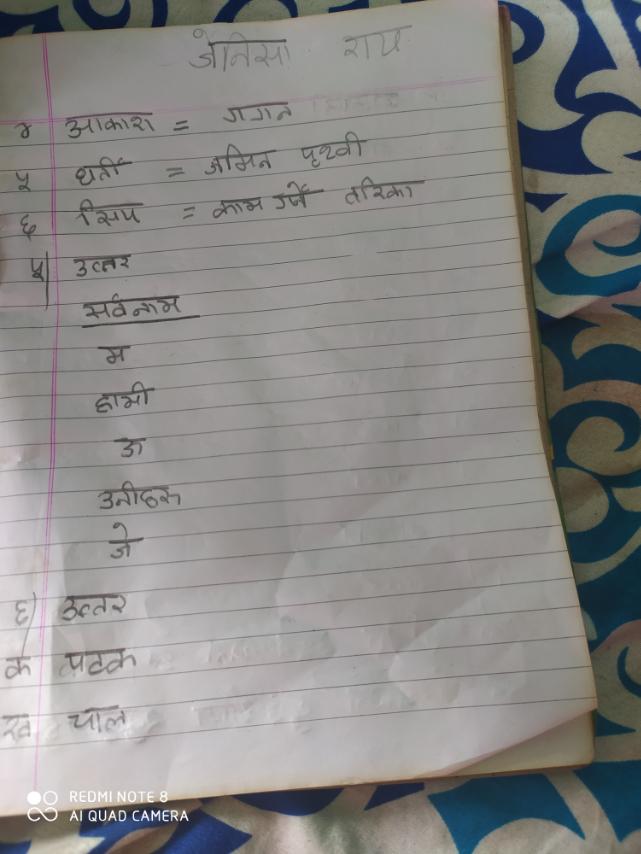 जेनिसा राय
४ आकाश = गगन
५ धर्ती = जमिन पृथ्वी
६ सिप = काम गर्ने तरिका
५) उत्तर
सर्वनाम
म
हामी
ऊ
उनीहरू
जे
६) उत्तर
क पटक
ख चाल
REDMI NOTE 8
AI QUAD CAMERA